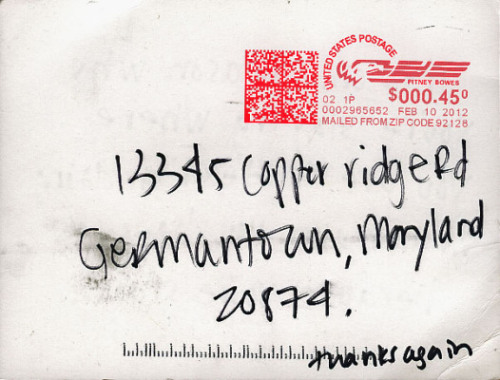 UNITED STATES POSTAGE
PITNEY BOWES
02 1P
$000.45⁰
0002965652 FEB 10 2012
MAILED FROM ZIP CODE 92128
13345 Copper ridge Rd
Germantown, Maryland
20874.
thanks again